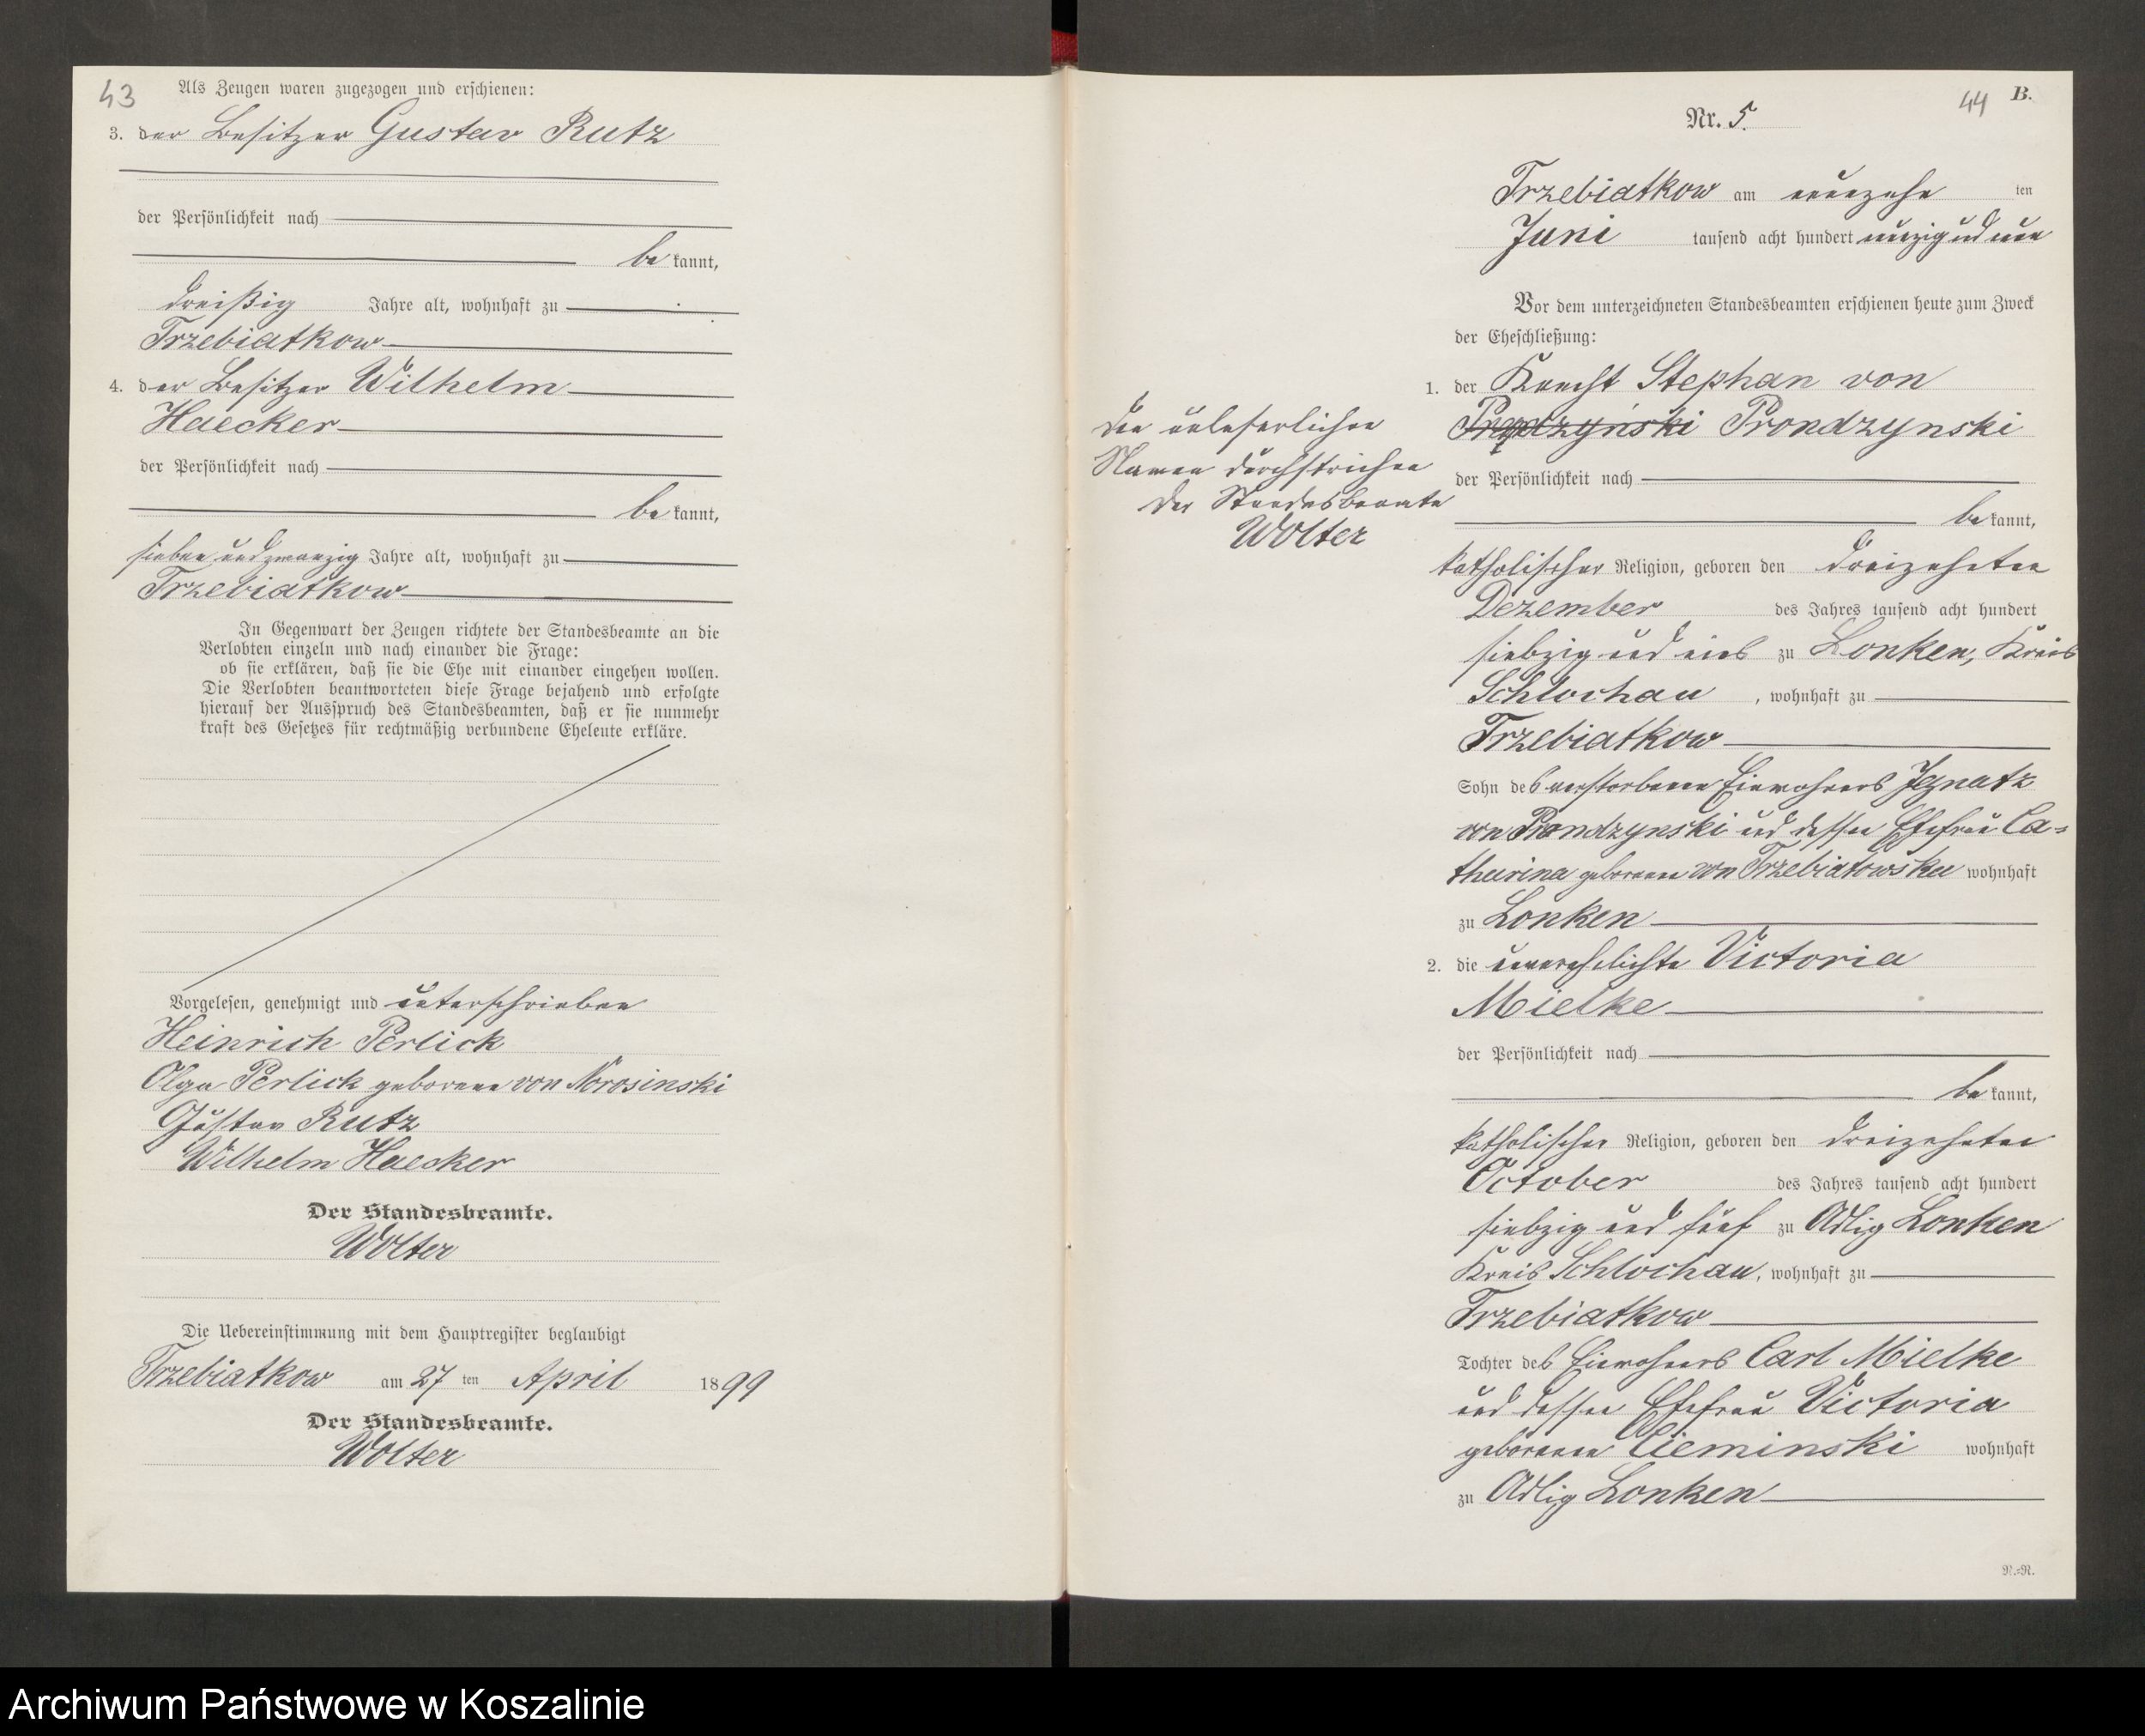 43
Als Zeugen waren zugezogen und erschienen:
3. der Besitzer Gustav Rutz
der Persönlichkeit nach
be kannt,
dreißig Jahre alt, wohnhaft zu
Trzebiatkow
4. der Besitzer Wilhelm
Haecker
der Persönlichkeit nach
be kannt,
sieben und zwanzig Jahre alt, wohnhaft zu
Trzebiatkow
In Gegenwart der Zeugen richtete der Standesbeamte an die
Verlobten einzeln und nach einander die Frage:
ob sie erklären, daß sie die Ehe mit einander eingehen wollen.
Die Verlobten beantworteten diese Frage bejahend und erfolgte
hierauf der Ausspruch des Standesbeamten, daß er sie nunmehr
kraft des Gesetzes für rechtmäßig verbundene Eheleute erkläre.
Vorgelesen, genehmigt und unterschrieben
Heinrich Perlick
Olga Perlick geborene von
Gustav Rutz
Wilhelm Haecker
Der Standesbeamte.
Wolter
Die Uebereinstimmung mit dem Hauptregister beglaubigt
Trzebiatkow am 27 ten April 1899
Der Standesbeamte.
Wolter
44 B.
Nr. 5.
Trzebiatkow am neunzehn ten
Juni tausend acht hundert neunzig und neun
Vor dem unterzeichneten Standesbeamten erschienen heute zum Zweck
der Eheschließung:
1. der Knecht Stephan von
Prondzynski
der Persönlichkeit nach
be kannt,
Den unleserlichen
Namen durchstrichen
Der Standesbeamte
Wolter
katholischer Religion, geboren den dreizehnten
Dezember des Jahres tausend acht hundert
siebzig und eins zu Lonken, Kreis
Schlochau, wohnhaft zu
Trzebiatkow
Sohn des verstorbenen Einwohners Ignatz
von Prondzynski und dessen Ehefrau Ca=
tharina geborenen von Trzebiatowska wohnhaft
zu Lonken
2. die unverehelichte Victoria
Mielke
der Persönlichkeit nach
be kannt,
katholischer Religion, geboren den dreizehnten
October des Jahres tausend acht hundert
siebzig und fünf zu Adlig Lonken
Kreis Schlochau, wohnhaft zu
Trzebiatkow
Tochter des Einwohners Carl Mielke
und dessen Ehefrau Victoria
geborenen Cieminski wohnhaft
zu Adlig Lonken
N.=N.
Archiwum Państwowe w Koszalinie